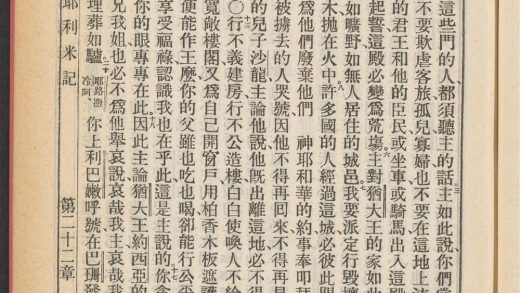 這些門的人都須聽主的話主如此說你們當
不要欺虐客旅孤兒寡婦也不要在這地上流
的君王和他的臣民或坐車或騎馬出入這殿
起誓這殿必變爲荒塲主對猶大王的家如此
如曠野如無人居住的城邑我要派定行毀壞
木抛在火中許多國的人經過這城必彼此問
爲他們廢棄他們 神耶和華的約事奉叩拜
被擄去的人哭號因他不得再回來不得再見
的兒子沙龍主論他說他旣出離這地必不得
○行不義建房行不公造樓白白使喚人不給
寬敞樓閣又爲自己開窗戶用柏香木板遮護
便能作王麼你的父雖也吃也喝卻能行公
享受福祿認識我也在乎此這是主說的你貪
你的眼專專在此因此主論猶大王約西亞的
兄我姐也必不爲他舉哀說哀哉我主哀哉我
埋葬如驢 耶路撒冷阿 你上利巴嫩呼號在巴珊發
耶利米記 第二十二章